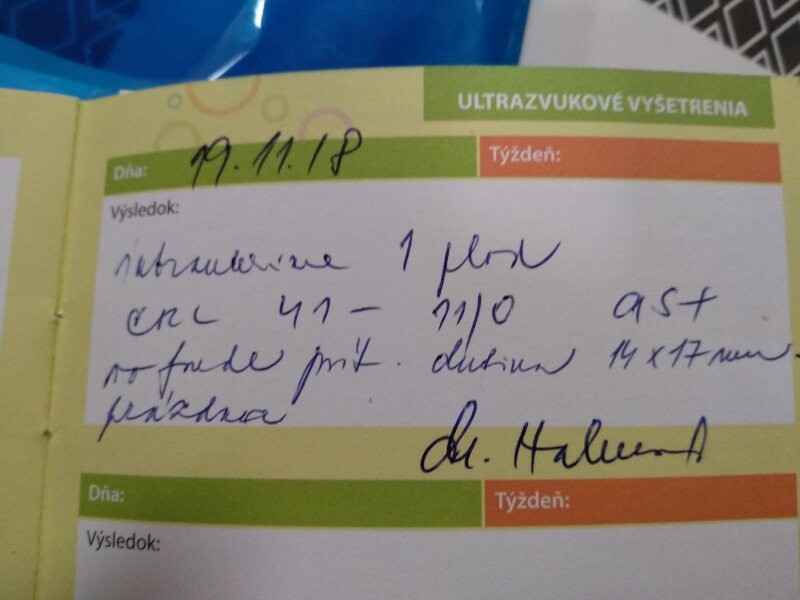 ULTRAZVUKOVÉ VYŠETRENIA
Dňa: 19.11.18 Týždeň:
Výsledok:
intrauterine 1 plod
CRL 41 - 11/0 as+
vo funde prít. dutina 14 x 17 mm -
prázdna
Dňa: Týždeň:
Výsledok: